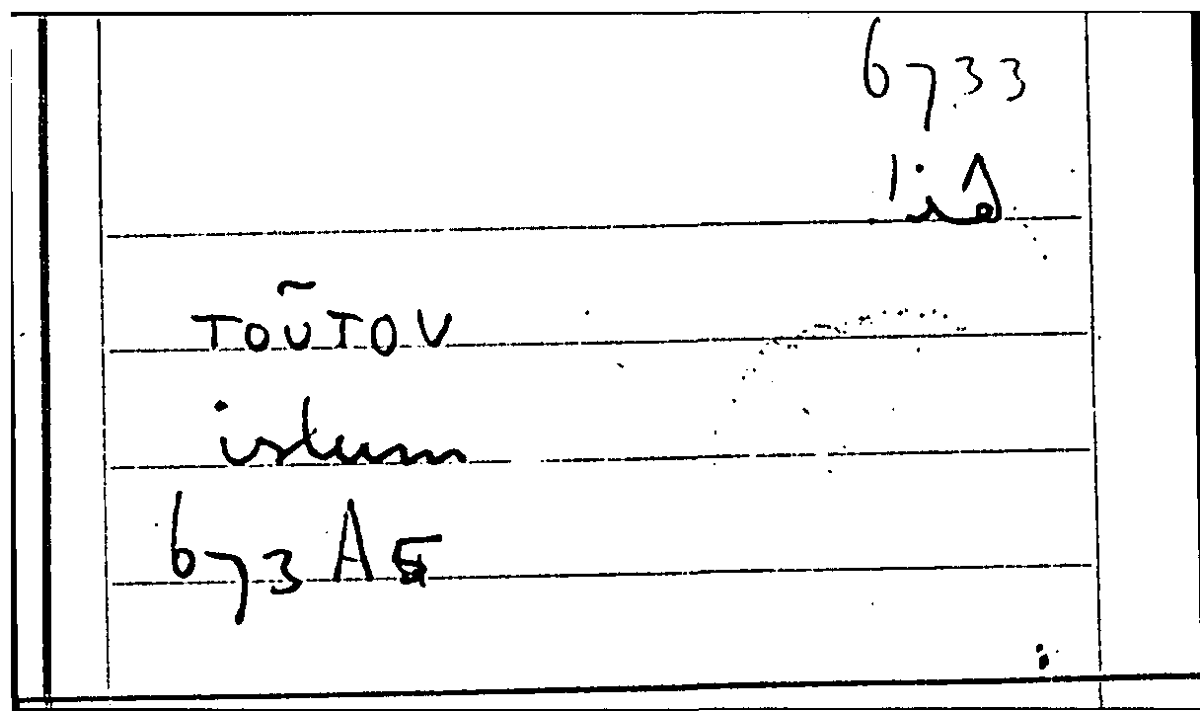 6733
ΤΟῦΤΟΥ
istum
673A5